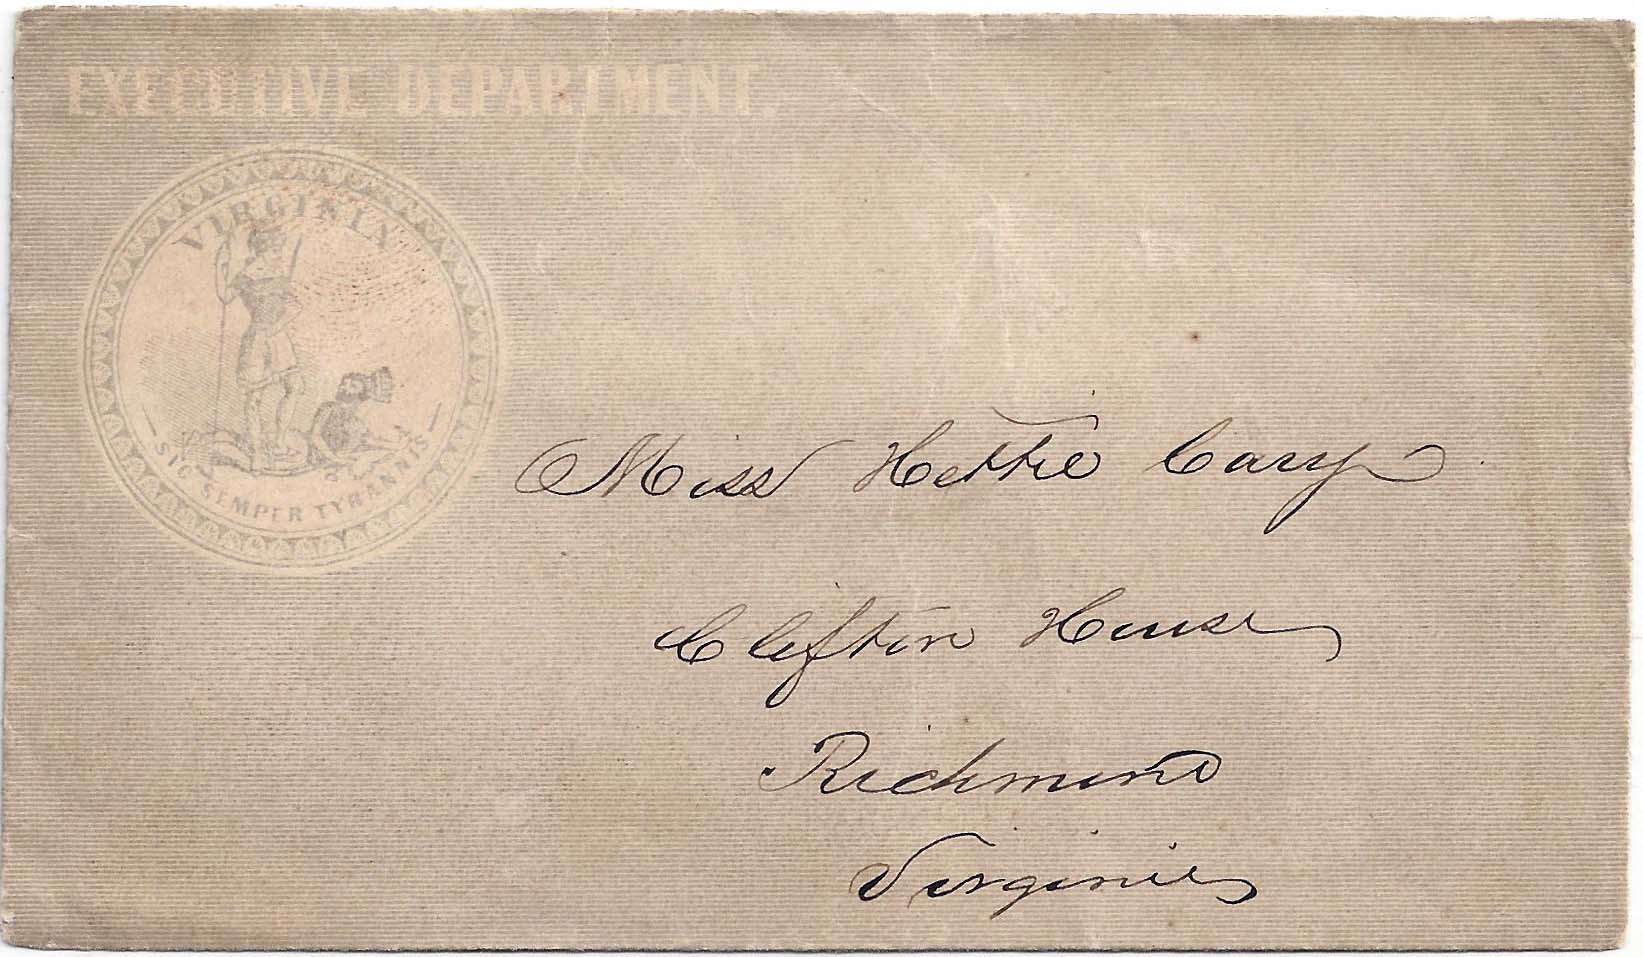 EXECUTIVE DEPARTMENT
VIRGINIA
SIC SEMPER TYRANNIS
Miss Hettie Cary
Clifton House
Richmond
Virginia